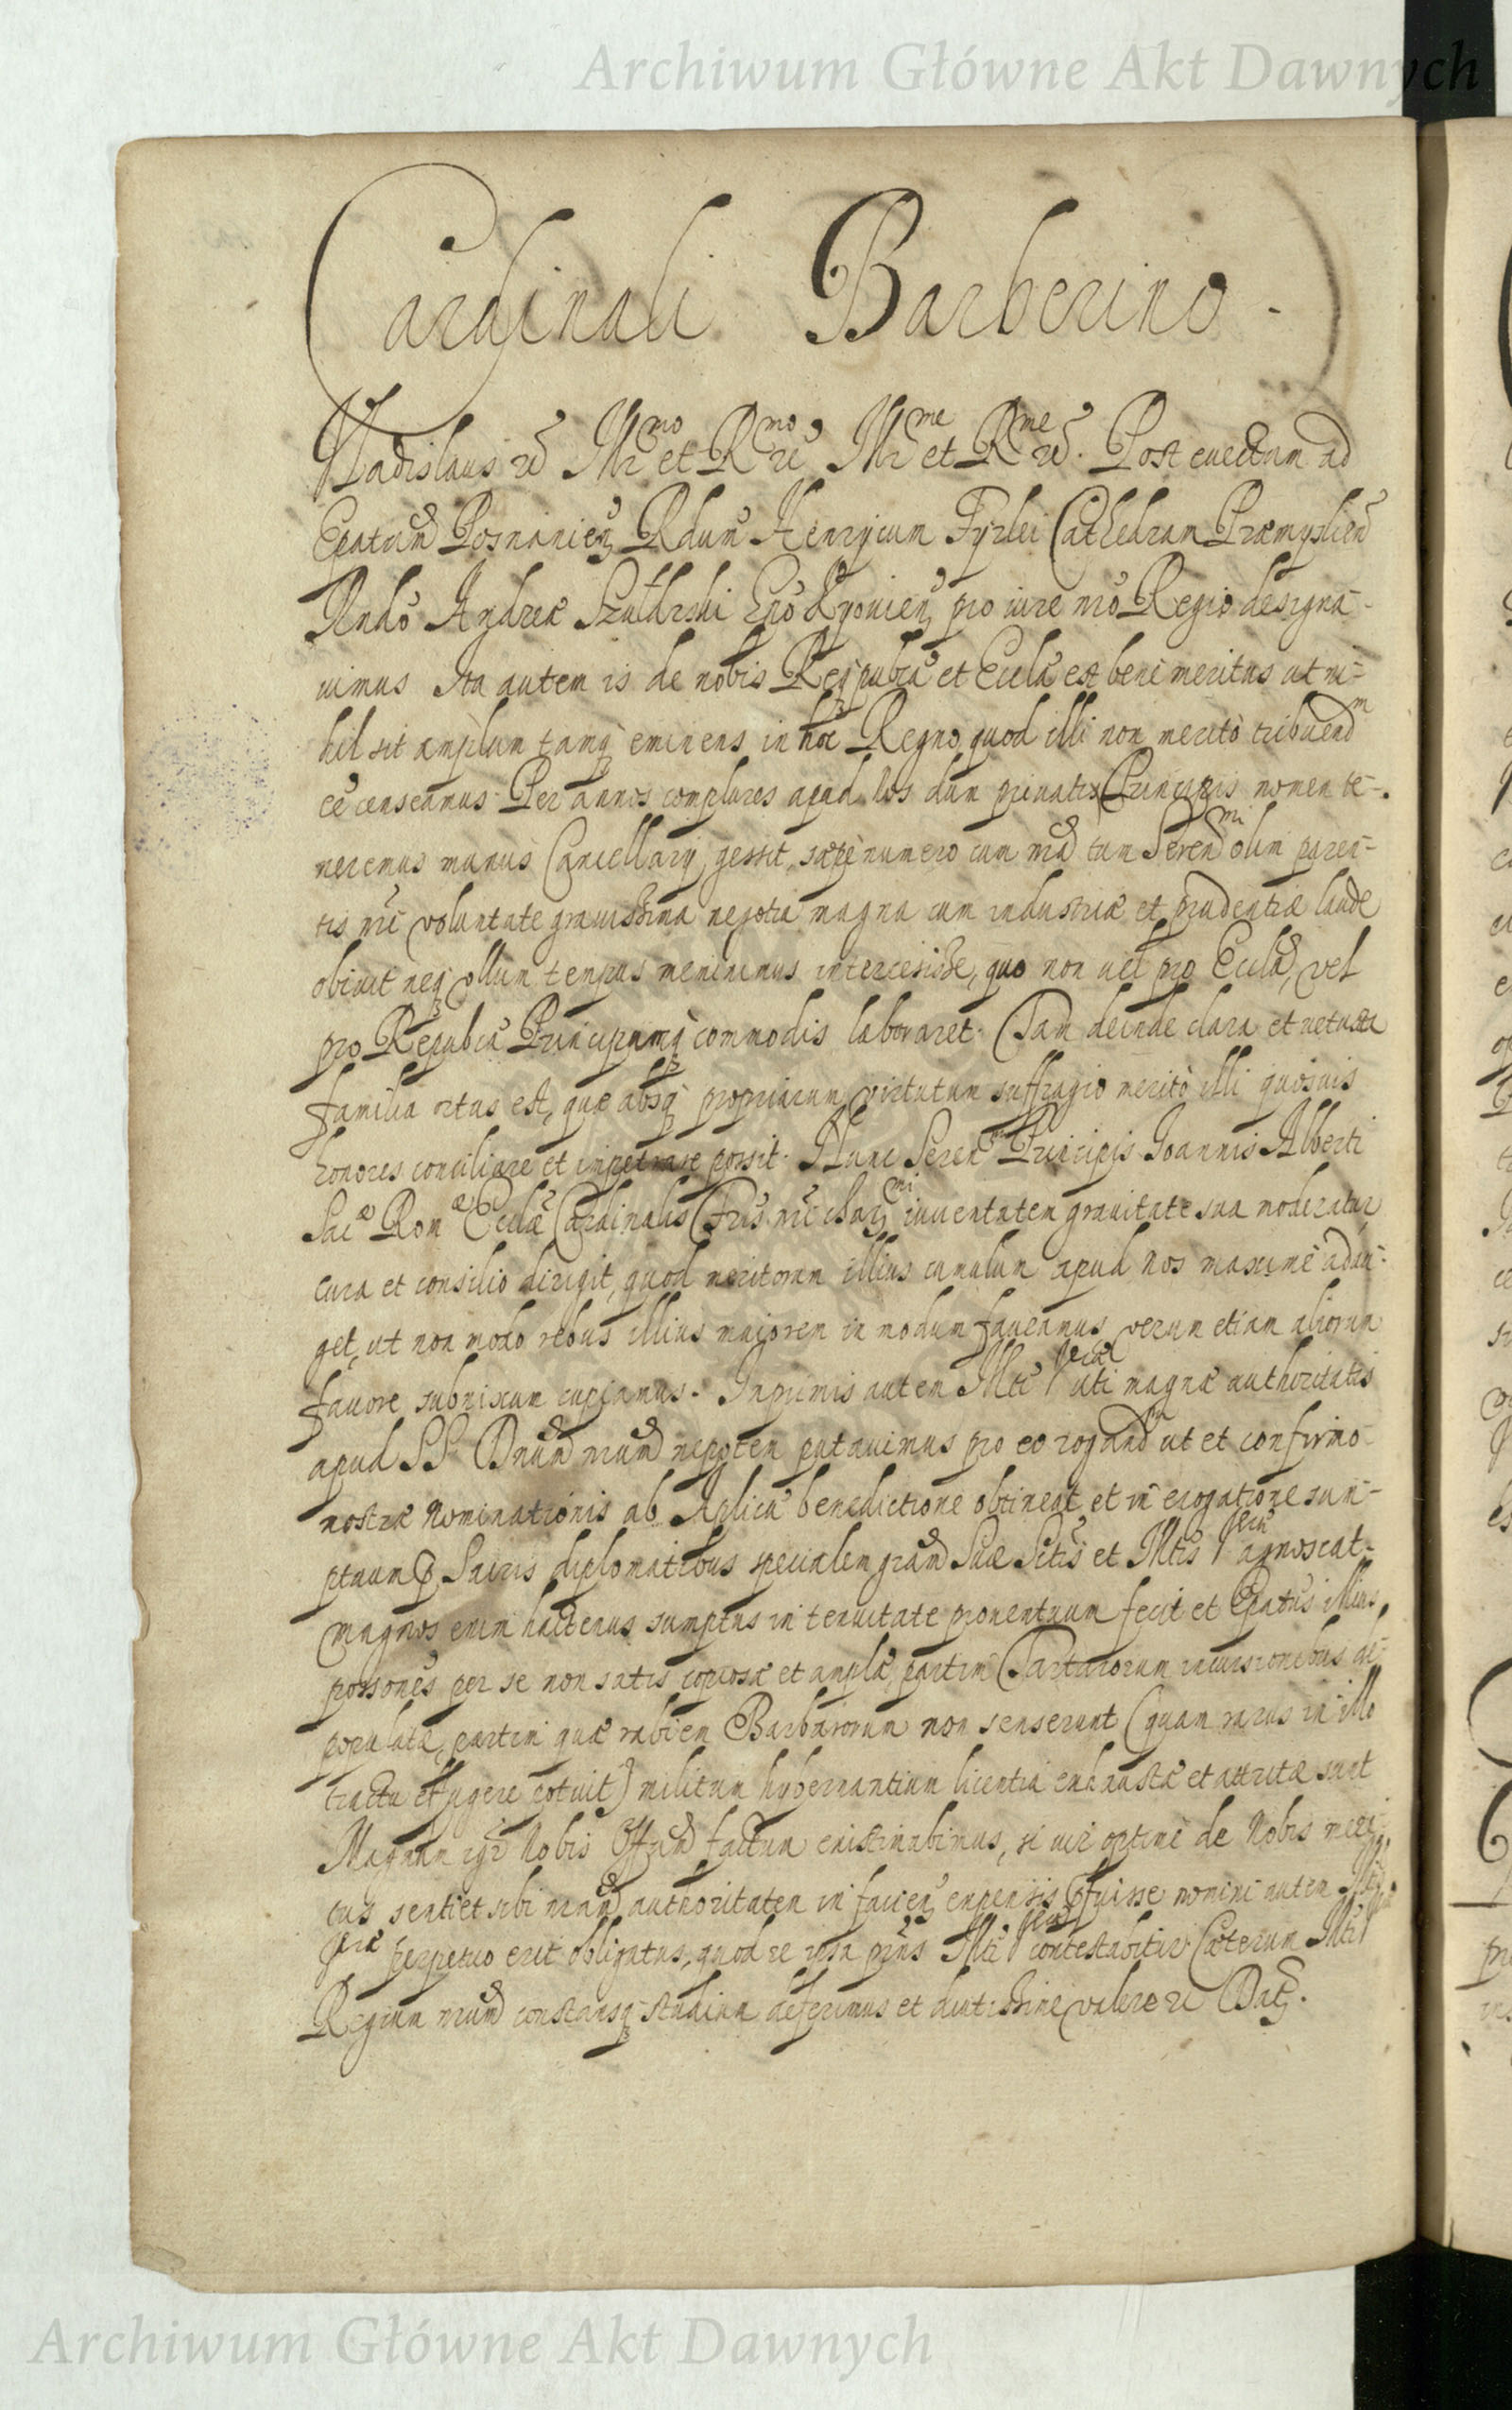 Archiwum Główne Akt Dawnych
Cardinali Barberino.
Vladislaus etc Illmo et Rmo etc Illme et Rme etc. Post euectum ad
Epatum Posnanien Rdum Henrycum Fyrlei Cathedram Præmyslien
Rndo Andreæ Szołdrski Epo Kyouien pro iure nro Regio designa-
uimus Ita autem is de nobis Repubca et Eccla est bene meritus ut ni-
hil sit amplum tamq eminens in hoc Regno quod illi non merito tribuend
ce censeamus. Per annos complures apud Nos dum priuati Principis nomen te-
neremus munus Cancellarij gessit, sæpenumero cum nra tum Serenmi olim paren-
tis nri voluntate grauissima negotia magna cum industriæ et prudentiæ laude
obiuit neq ullum tempus meminimus intercessisse, quo non uel pro Eccla, vel
pro Repubca Principumq commodis laboraret. Jam deinde clara et uetusta
familia ortus est, quæ absq propriarum virtutum suffragio merito illi quosuis
honores conciliare et impetrare possit. Nunc Seren Principis Joannis Alberti
Sacæ Romæ Ecclæ Cardinalis Fris nri chari iuuentutem grauitate sua moderatur
cura et consilio dirigit, quod meritorum illius cumulum apud nos maxime adau-
get, ut non modo rebus illius maiorem in modum faueamus verum etiam aliorum
fauore subnixum cupiamus. Inprimis autem Illtem Vram uti magnæ authoritatis
apud SS Dnum nrum nepotem putauimus pro eo rogand ut et confirmo-
nostræ Nominationis ab Aplica benedictione obtineat et in erogatione sum-
ptuum p Sacris diplomatibus specialem gram Suæ Sctis et Illtis Vræ agnoscat.
magnos enim hactenus sumptus in tenuitate prouentuum fecit et Epatus illius
possones per se non satis copiosæ et amplæ, partim Tartarorum incursionibus de-
populatæ, partim quæ rabiem Barbarorum non senserunt (quam rarus in illo
tractu effugere potuit) militum hybernantium licentia exhaustæ et attritæ sunt
Magnum igr Nobis Offum factum existimabimus, si uir optime de Nobis meri-
tus sentiet sibi nram authoritatem in facien expensis pfuisse nomini autem Illtis
Vræ perpetuo erit obligatus, quod re ipsa prius Illti Vræ contestabitur. Cæterum Illti
Regium nrum constansq studium deferimus et diutissime valere etc Dat.
Archiwum Główne Akt Dawnych